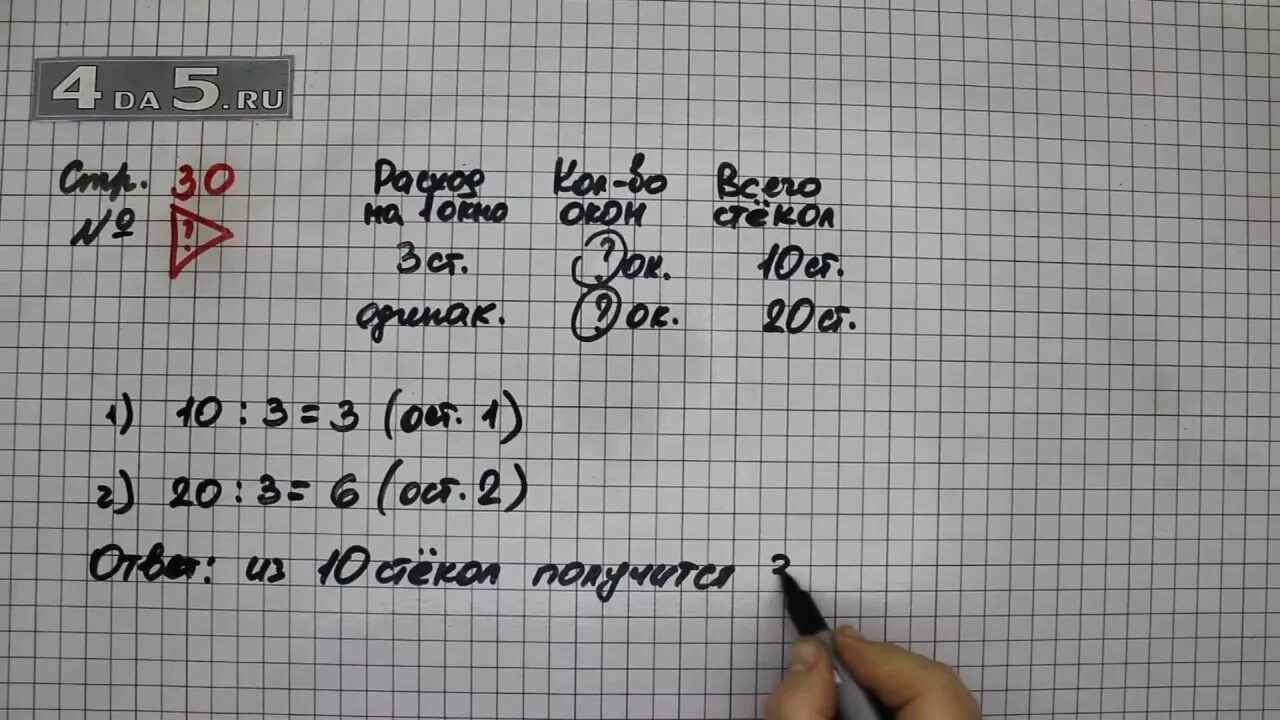 4DA5.RU
Стр. 30
№ ?
Расход на 1 окно Кол-во окон Всего стёкол
3 ст. ? ок. 10 ст.
одинак. ? ок. 20 ст.
1) 10 : 3 = 3 (ост. 1)
2) 20 : 3 = 6 (ост. 2)
Ответ: из 10 стёкол получится 3